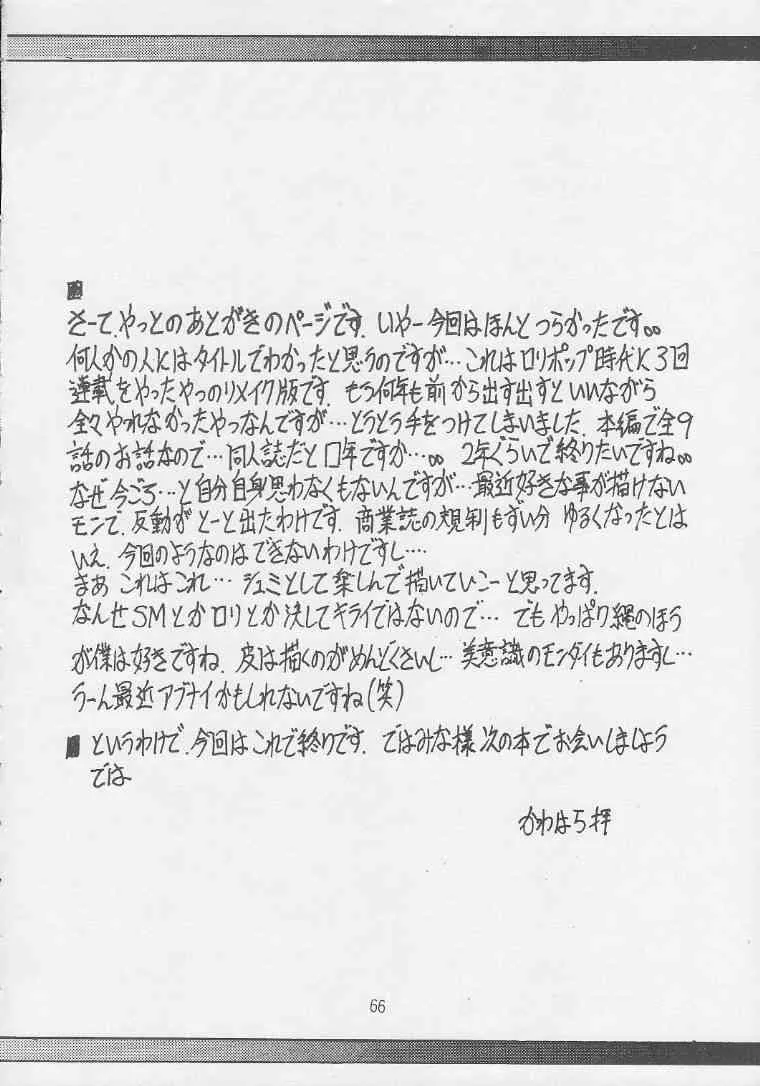 さーて、やっとのあとがきのページです。いやー今回はほんとつらかったです。。
何人かの人にはタイトルでわかったと思うのですが…これはロリポップ時代に3回
連載をやったやつのリメイク版です。もう何年も前から出す出すといいながら
全々やれなかったやつなんですが…とうとう手をつけてしまいました。本編で全9
話のお話なので…同人誌だと何年ですか…。。 2年ぐらいで終りたいですね。。
なぜ今ごろ…と自分自身思わなくもないんですが…最近好きな事が描けない
モンで、反動がどーと出たわけです。商業誌の規制もずい分 ゆるくなったとは
いえ、今回のようなのはできないわけですし…
まあ これはこれ… シュミとして楽しんで描いていこーと思ってます。
なんせSMとかロリとか決してキライではないので… でも やっぱり縄のほう
が僕は好きですね。皮は描くのがめんどくさいし…美意識のモンダイもありますし…
うーん最近アブナイかもしれないですね(笑)
というわけで、今回はこれで終りです。ではみな様次の本でお会いしましょう
では
かわはら拝
66